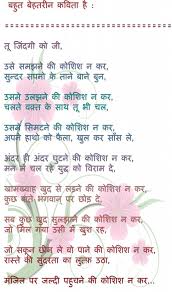 बहुत बेहतरीन कविता है :
तू जिंदगी को जी,
उसे समझने की कोशिश न कर,
सुन्दर सपनो के ताने बाने बुन,
उसमे उलझने की कोशिश न कर,
चलते वक़्त के साथ तू भी चल,
उसमें सिमटने की कोशिश न कर,
अपने हाथो को फैला, खुल कर साँस ले,
अंदर ही अंदर घुटने की कोशिश न कर,
मन में चल रहे युद्ध को विराम दे,
खामख्वाह खुद से लड़ने की कोशिश न कर,
कुछ बाते भगवान् पर छोड़ दे,
सब कुछ खुद सुलझाने की कोशिश न कर,
जो मिल गया उसी में खुश रह,
जो सकून छीन ले वो पाने की कोशिश न कर,
रास्ते की सुंदरता का लुत्फ़ उठा,
मंजिल पर जल्दी पहुचने की कोशिश न कर...